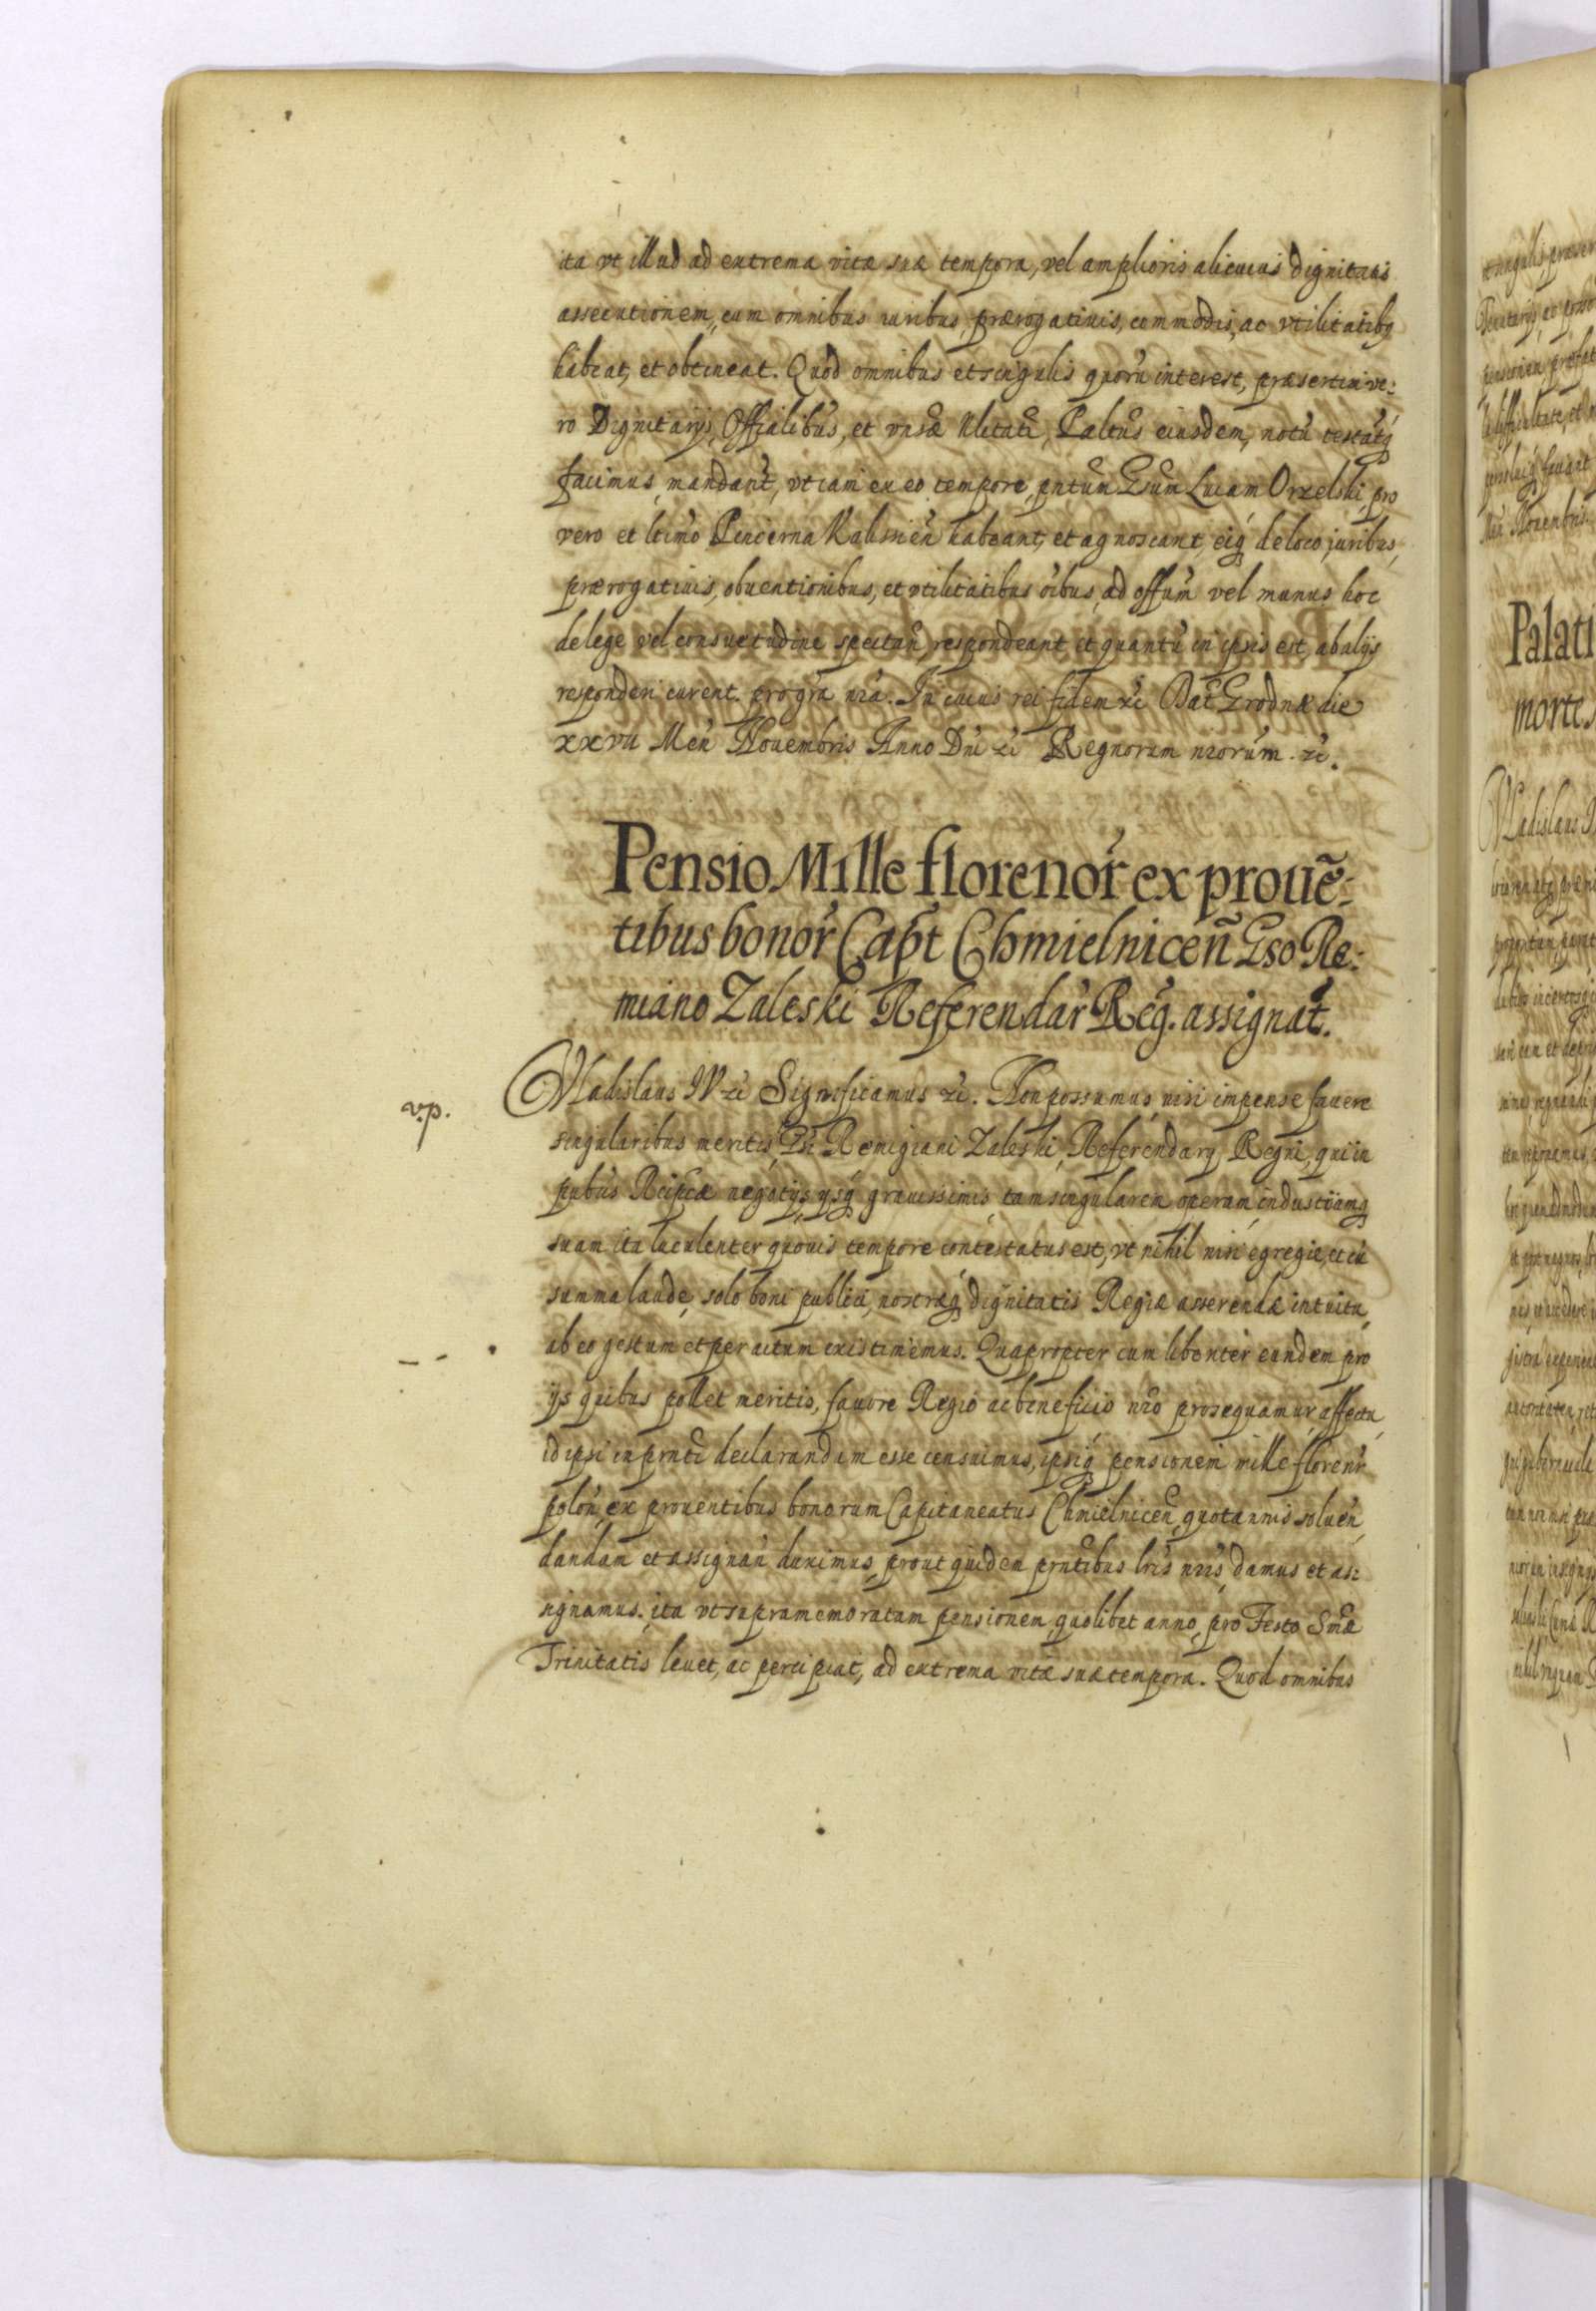 ita vt illud ad extrema vitæ suæ tempora, vel amplioris alicuius dignitatis
assecutionem, cum omnibus iuribus, prærogatiuis, commodis, ac vtilitatibq
habeat, et obtineat. Quod omnibus et singulis quorũ interest, præsertim ve:
ro Dignitarijs, Offialibus, et vnsæ Nlitati, Paltus eiusdem, notũ testatq
facimus, mandant, vt iam ex eo tempore, pntum Gsum Lucam Orzelski, pro
vero et ltimo Pincerna Kalissien habeant, et agnoscant, eiq de loco, juribus,
prærogatiuis, obuentionibus, et vtilitatibus oibus, ad offum vel munus hoc
de lege vel consuetudine spectan, respondeant et quantũ in ipsis est, ab alijs
responderi curent. pro gra nra. In cuius rei fidem &c Dat Grodnæ die
XXVII Men Nouembris Anno Dni &c Regnorum nrorum &c.
Pensio Mille florenor ex prouẽ:
tibus bonor Capt Chmielnicen Gso Re:
miano Zaleski Referendar Reg. assignat.
v.p.
Vladislaus IV &c Significamus &c. Non possumus, nisi impense fauere
singularibus meritis Gsi Remigiani Zaleski, Referendary Regni, qui in
pubus Reipcæ negotijs, ysq grauissimis, tam singularem operam industriamq
suam ita luculenter quouis tempore contestatus est, vt nihil nisi egregie, et cũ
summa laude, solo boni publici, nostræq dignitatis Regiæ asserendæ intuitu,
ab eo gestum et peractum existimemus. Quapropter cum libenter eundem pro
ijs quibus pollet meritis, fauore Regio ac beneficio nro prosequamur affectu,
id ipsi in prnti declarandum esse censuimus, ipsiq pensionem mille florenr
polon, ex prouentibus bonorum Capitaneatus Chmielnicen, quotannis soluen,
dandam et assignan duximus, prout quidem prntibus lris nris damus et as:
signamus. ita vt supramemoratam pensionem, quolibet anno, pro Festo Smæ
Trinitatis leuet, ac percipiat, ad extrema vitæ suæ tempora. Quod omnibus
Palati
morte